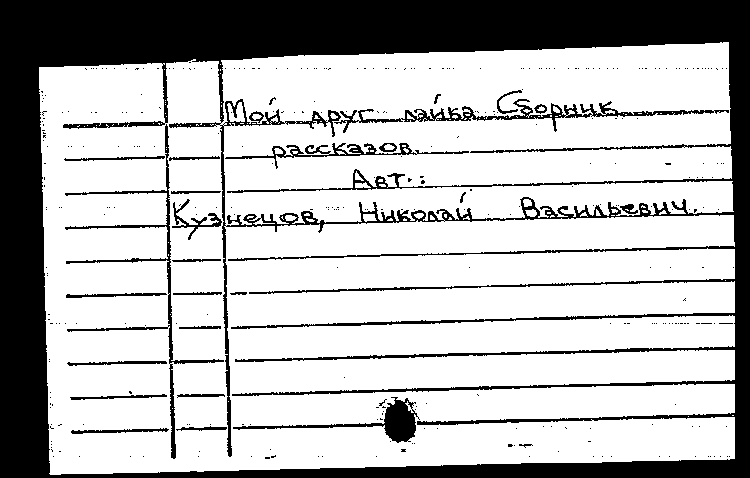 Мой друг лайка Сборник
рассказов.
Авт.:
Кузнецов, Николай Васильевич.